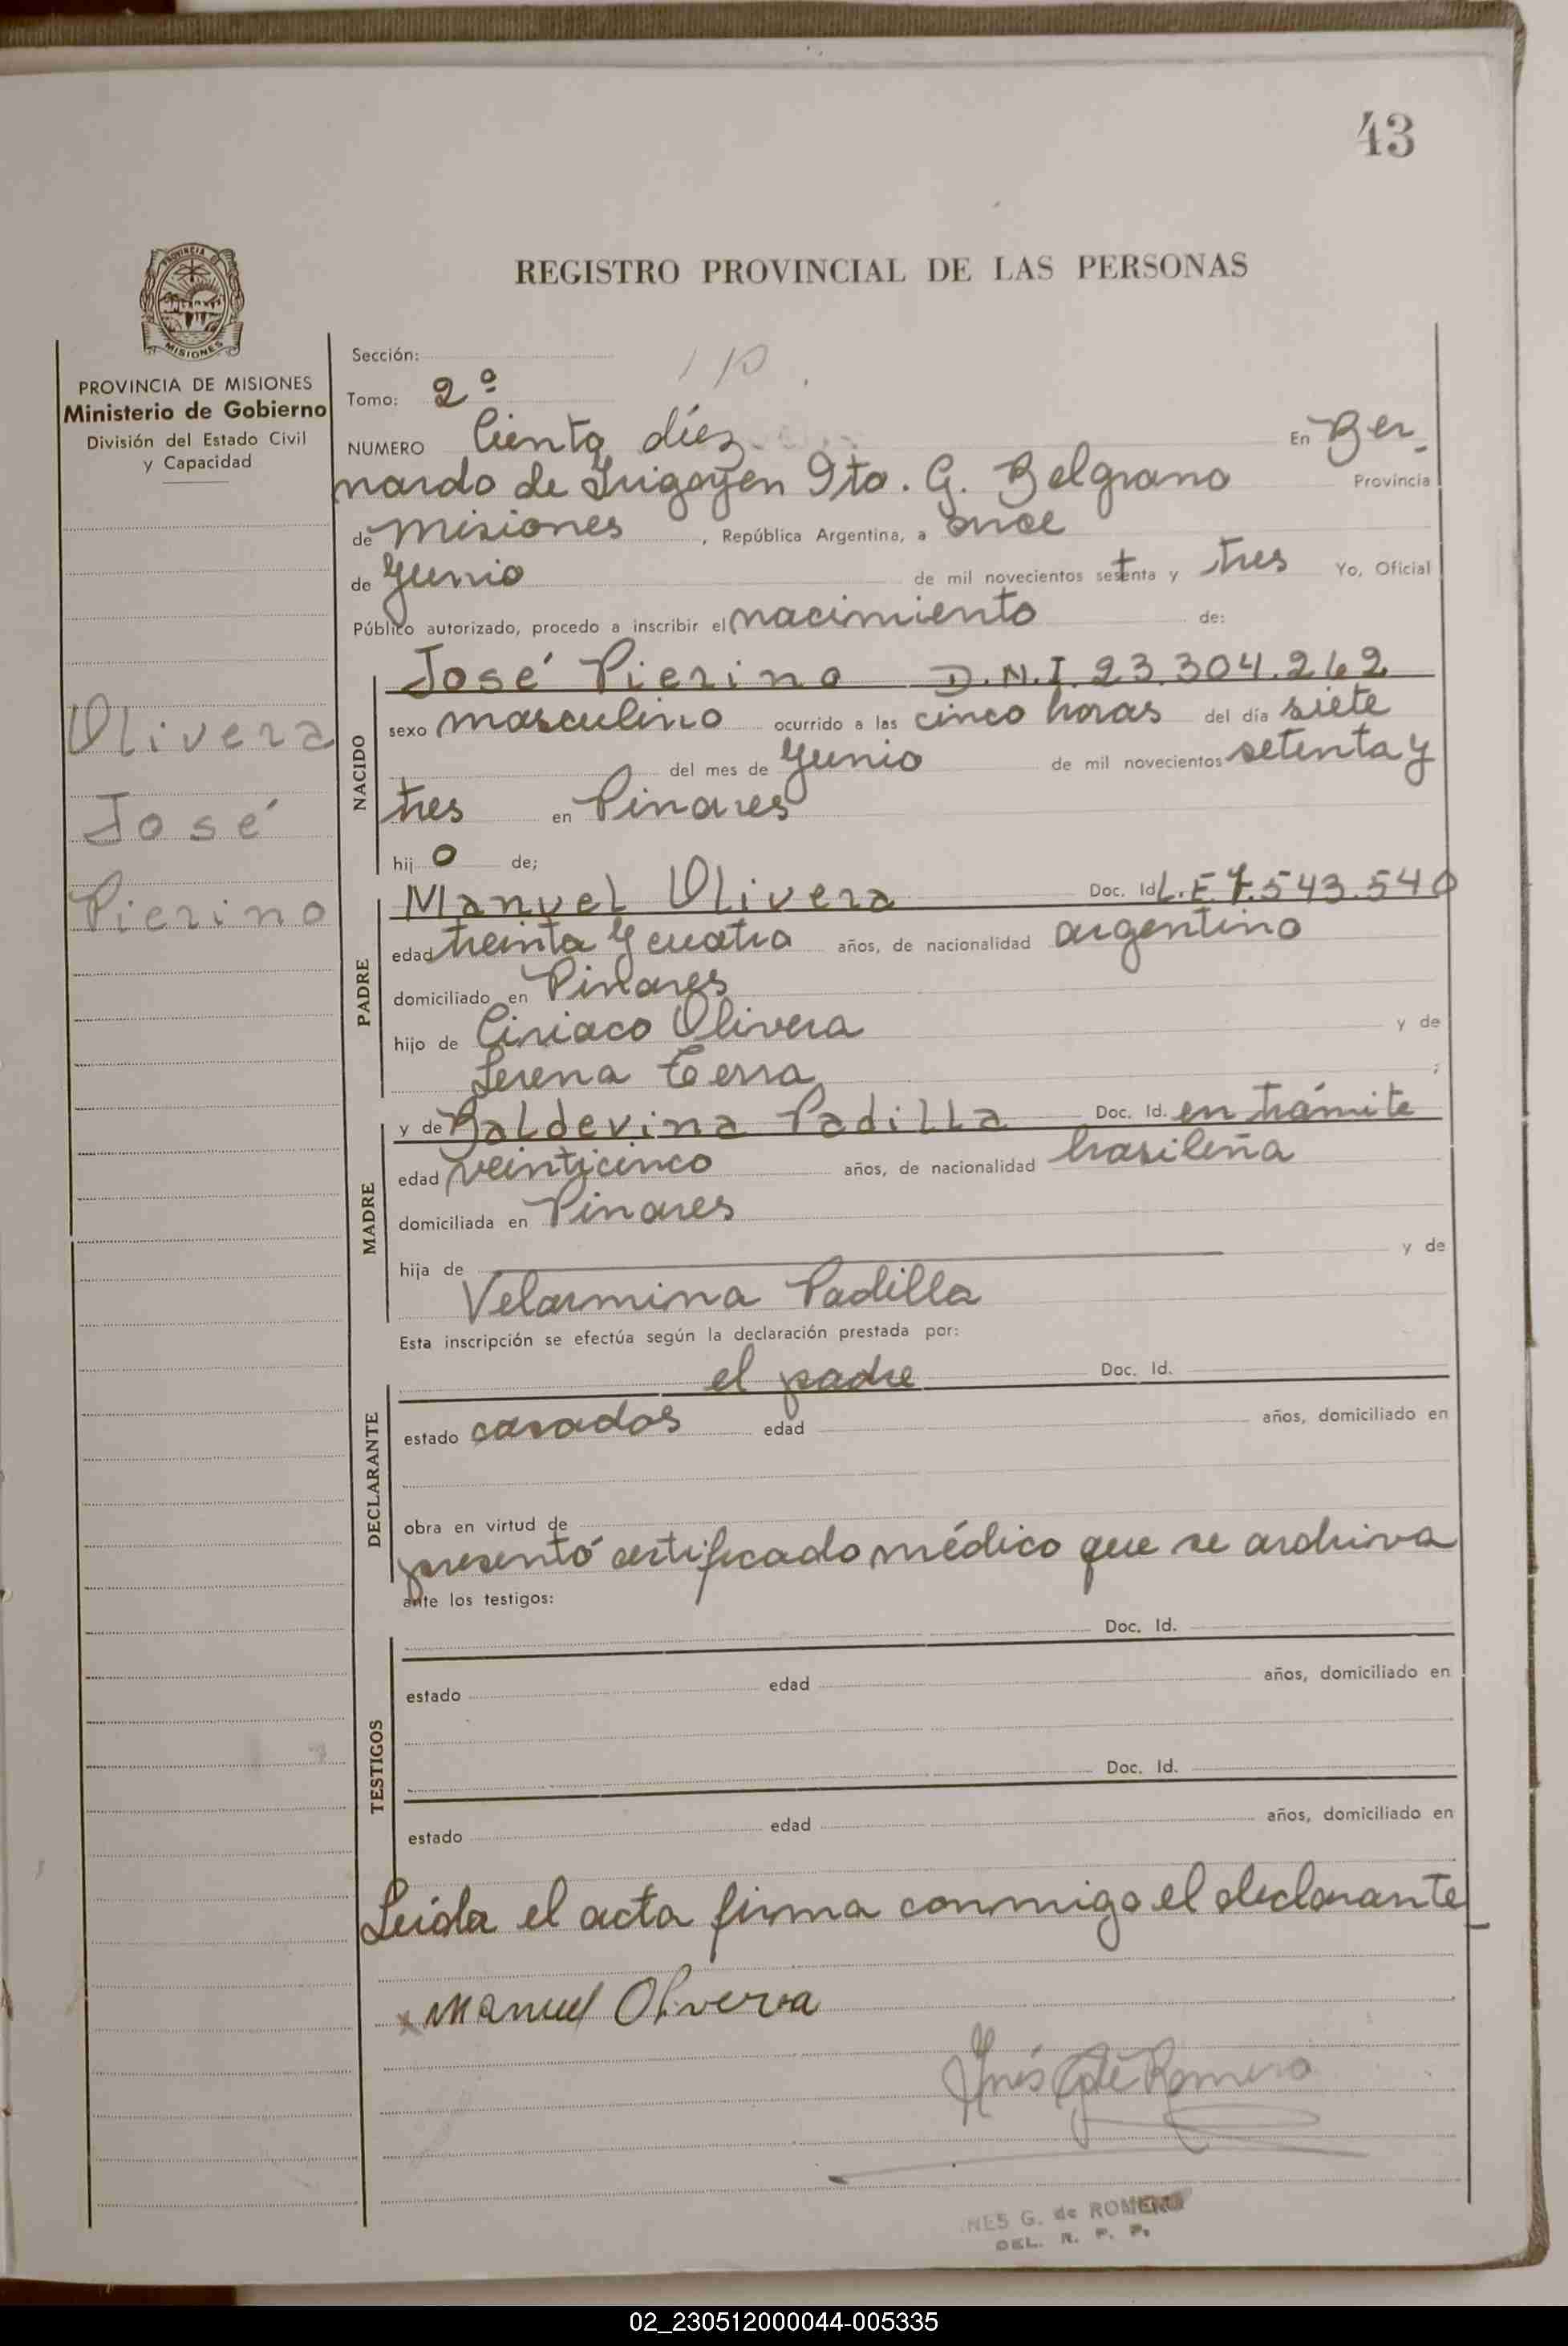 43
REGISTRO PROVINCIAL DE LAS PERSONAS
PROVINCIA DE MISIONES
Ministerio de Gobierno
División del Estado Civil
y Capacidad
Olivera
José
Pierino
Sección:
110
Tomo: 2º
NUMERO Ciento díez En Ber-
nardo de Irigoyen Dto. G. Belgrano Provincia
de Misiones, República Argentina, a once
de Junio de mil novecientos setenta y tres Yo, Oficial
Público autorizado, procedo a inscribir el nacimiento de:
NACIDO
José Pierino D.N.I. 23.304.262
sexo masculino ocurrido a las cinco horas del día siete
del mes de Junio de mil novecientos setenta y
tres en Pinares
hijo de;
PADRE
Manuel Olivera Doc. Id. L.E 7.543.540
edad treinta y cuatro años, de nacionalidad argentino
domiciliado en Pinares
hijo de Ciriaco Olivera y de
Serena Terra;
MADRE
y de Baldevina Padilla Doc. Id. en trámite
edad veinticinco años, de nacionalidad brasileña
domiciliada en Pinares
hija de y de
Velarmina Padilla
Esta inscripción se efectúa según la declaración prestada por:
DECLARANTE
el padre Doc. Id.
estado casados edad años, domiciliado en
obra en virtud de
presentó certificado médico que se archiva
ante los testigos:
TESTIGOS
Doc. Id.
estado edad años, domiciliado en
Doc. Id.
estado edad años, domiciliado en
Leída el acta firma conmigo el declarante
x Manuel Olivera
Inés G de Romero
INES G. de ROMERO
DEL. R. P. P.
02_230512000044-005335